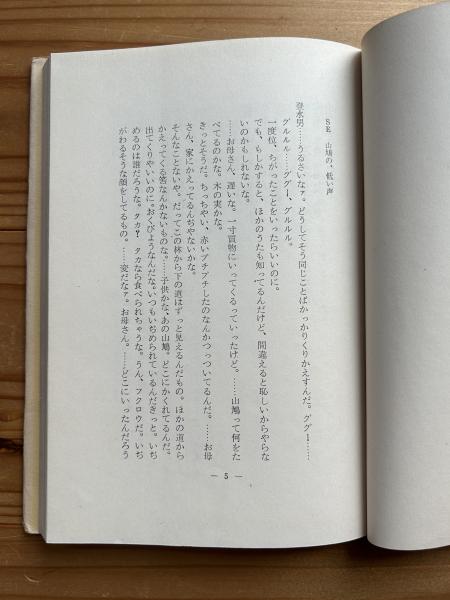 SE　山鳩の、低い声
登水男……うるさいなァ。どうしてそう同じことばかっかりくりかえすんだ。ググー……
グルルル……ググー、グルルル。
一度位、ちがったことをいったらいいのに。
でも、もしかすると、ほかのうたも知ってるんだけど、間違えると恥しいからやらな
いのかもしれないな。
……お母さん、遅いな。一寸買物にいってくるっていったけど。……山鳩って何をた
べてるのかな。木の実かな。
きっとそうだ。ちっちゃい、赤いプチプチしたのなんかつっついてるんだ。……お母
さん、家にかえってるんぢやないかな。
そんなことないや。だってこの林から下の道はずっと見えるんだもの。ほかの道から
かえってくる筈なんかないものな。……子供かな、あの山鳩。どこにかくれてるんだ。
出てくりやいいのに。おくびょうなんだな。いつもいぢめられているんだきっと。いぢ
めるのは誰だろうな。タカ？　タカなら食べられちゃうな。うん、フクロウだ。いぢ
がわるそうな顔をしてるもの。
……変だなァ。お母さん。……どこにいったんだろう
— 5 —